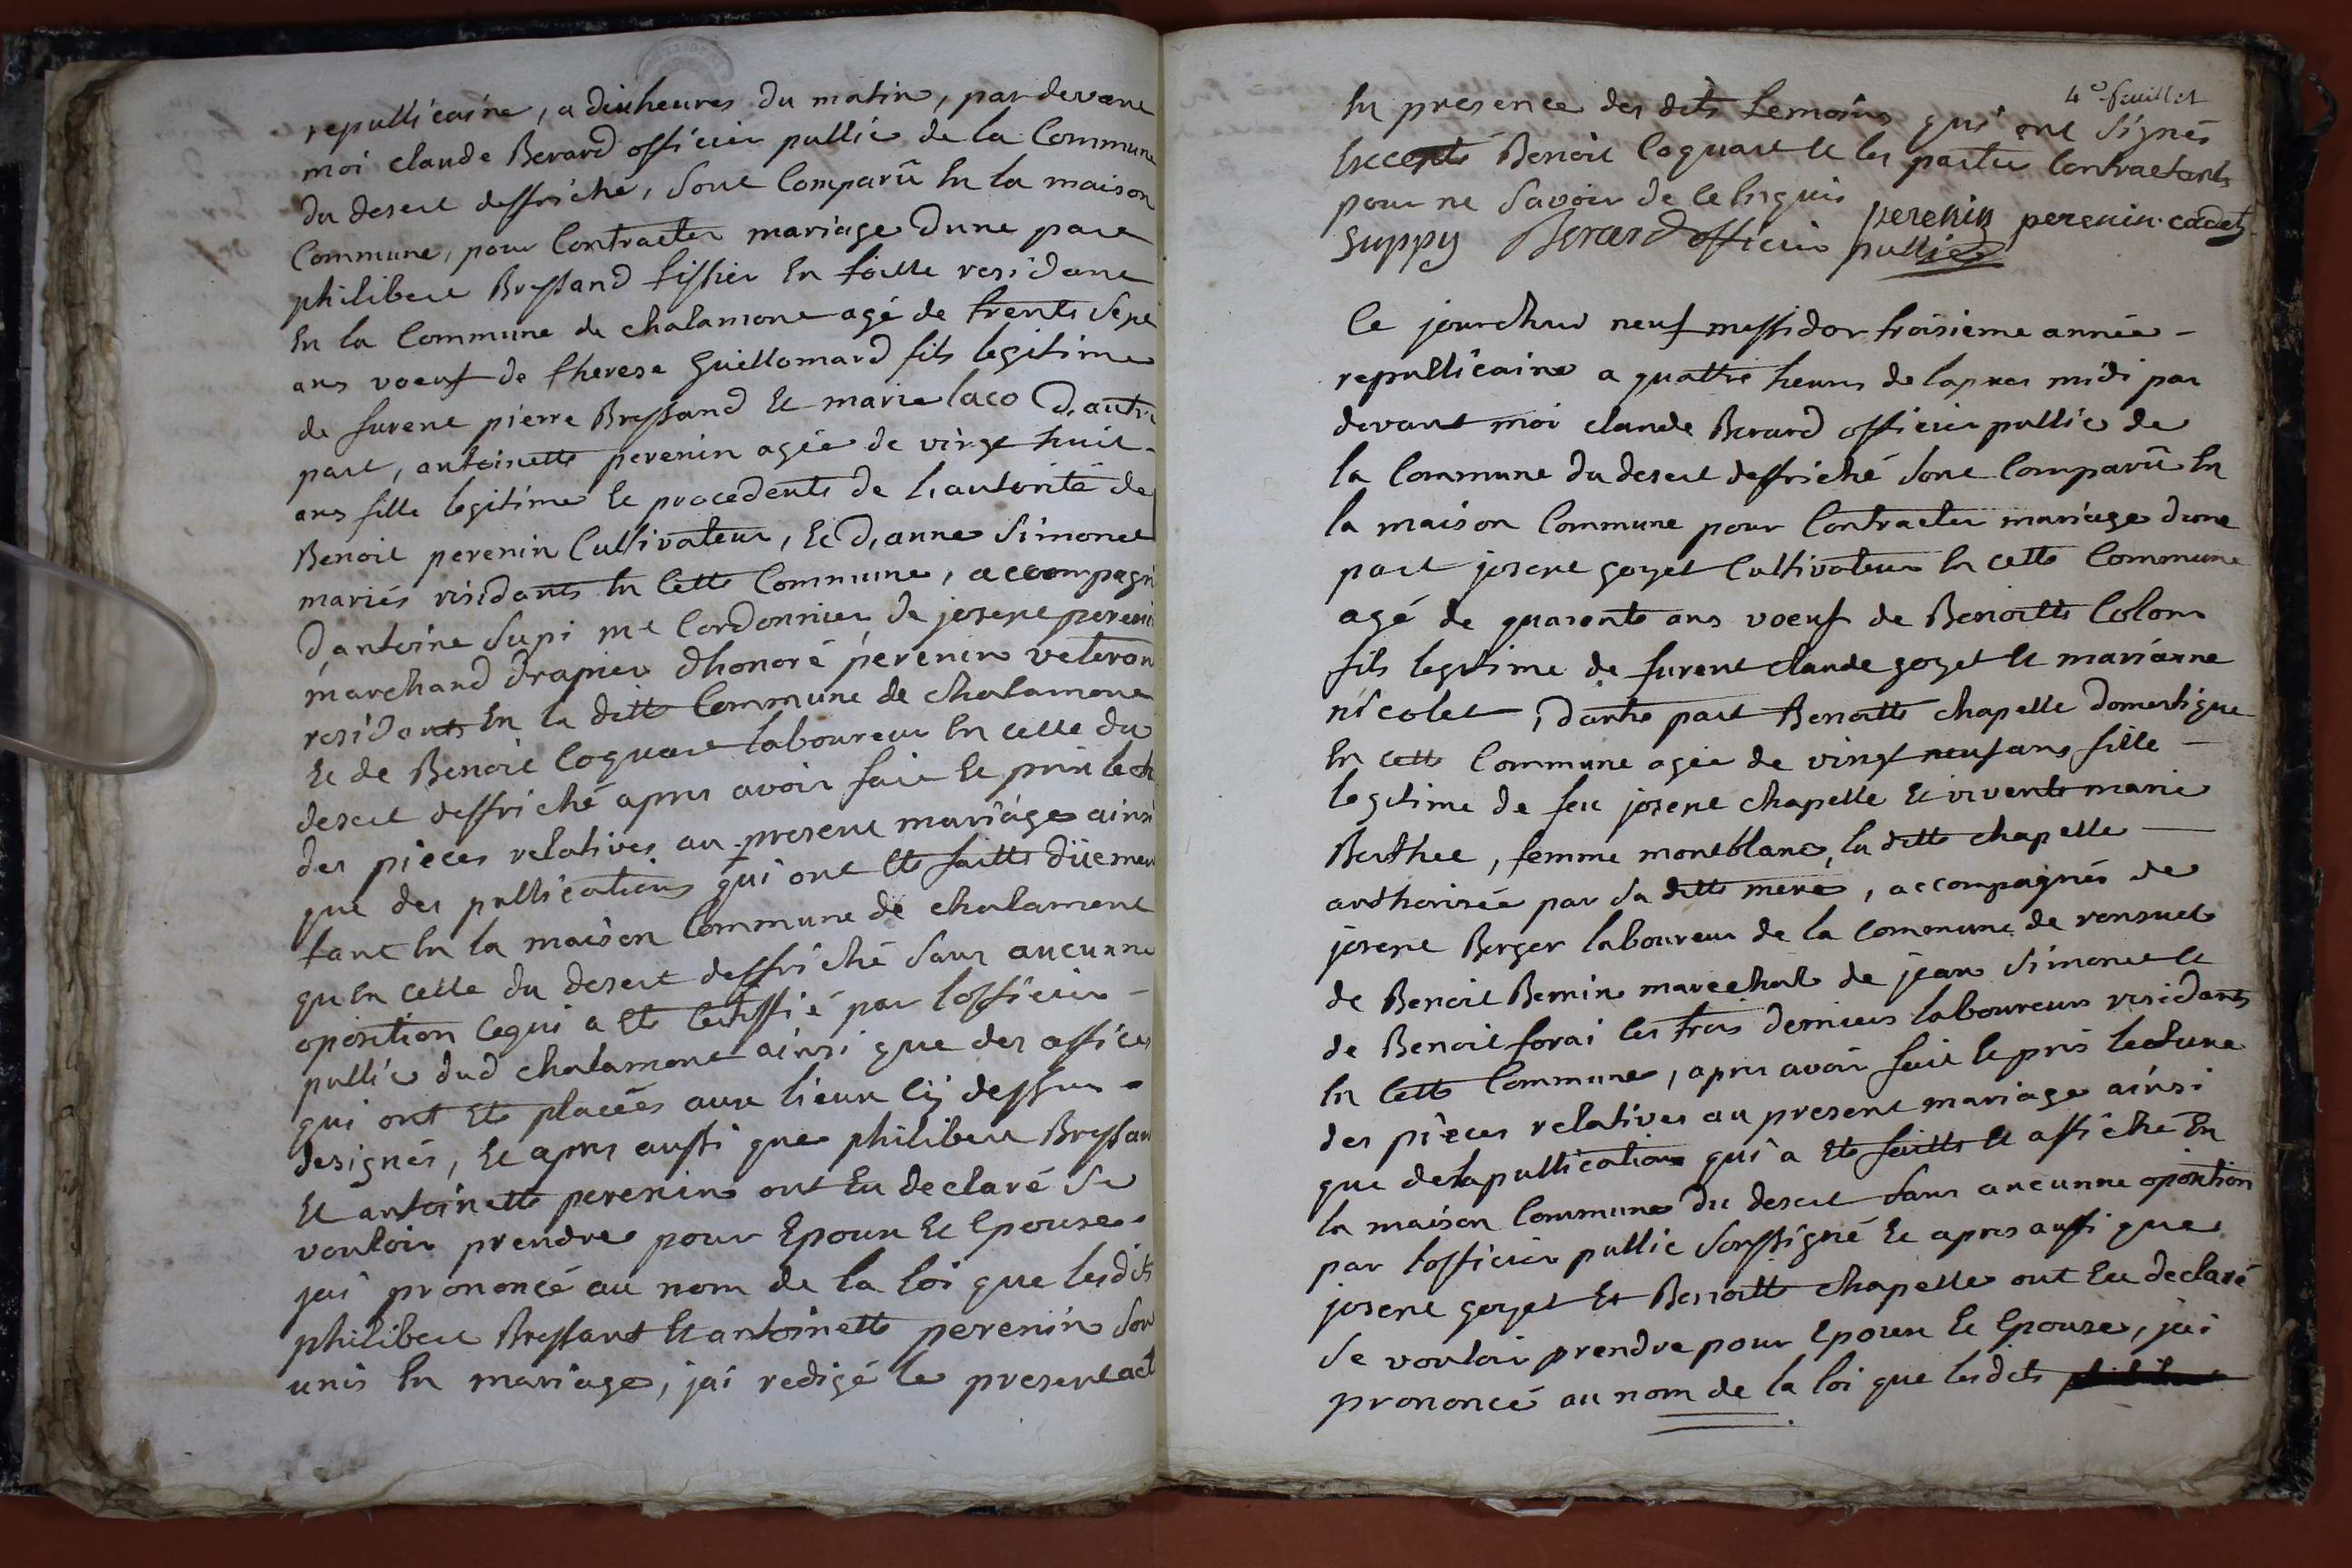 republicaine, a dixheures du matin, par devant
moi claude Berard officier public de la Commune
du desert deffriché, sont Comparû En la maison
Commune, pour Contracter mariage Dune part
philibert Bressand tissier En toille residant
En la Commune de chalamont agé de trente sept
ans voeuf de therese Guillomard fils legitime
de furent pierre Bressand Et marie laco D,autre
part, antoinette perenin agée de vingt huit
ans fille legitime Et procedente de L,autorité de
Benoit perenin Cultivateur, Et D,anne Simonet
mariés residants En Cette Commune, accompagn
D,antoine Supi me Cordonnier, de joseph pereni
marchand drapier dhonoré perenin veteran
residants En la ditte Commune de chalamont
Et de Benoit Coquart laboureur En celle du
desert deffriché apres avoir fait Et pris lect
des pieces relatives au present mariage ainsi
que des publications qui ont Eté faitte düemen
tant En la maison Commune de chalamont
qu'En celle du desert deffriché Sans aucunne
oposition Cequi a Eté Certiffié par lofficier
public dud chalamont ainsi que des affices
qui ont Eté placées aux lieux Cij dessus
designés, Et apres aussi que philibert Bressan
Et antoinette perenin ont Eu declaré Se
vouloir prendre pour Epoux Et Epouse
jai prononcé au nom de la loi que lesdits
philibert Bressant Et antoinette perenin Son
unis En mariage, jai redigé le present act
4e feuillet
En presence des dits temoins qui ont Signés
Excepté Benoit Coquart Et les parties Contractants
pour ne Savoir de Ce Enquis
perenin perenin cadet
Suppy Berard officier public
Ce jourdhui neuf messidor troisieme année
republicaine a quattre heures de lapres midi par
devant moi claude Berard officier public de
la Commune du desert deffriché Sont Comparû En
la maison Commune pour Contracter mariage dune
part joseph goyet Cultivateur En cette Commune
agé de quarente ans voeuf de Benoitte Colom
fils legitime de furent claude goyet Et marianne
nicolet, Dautre part Benoitte chapelle Domestique
En cette Commune agée de vingt neuf ans fille
legitime de feu joseph chapelle Et vivente marie
Berthet, femme montblanc, la ditte chapelle
authorisée par Sa ditte mere, accompagnés de
joseph Berger laboureur de la Commune de ronsuel
de Benoit Bernin marechal de jean Simonet Et
de Benoit forai les trois derniers laboureurs residants
En Cette Commune, apres avoir fait Et pris lecture
des pièces relatives au present mariage ainsi
que de la publication qui a Eté faitte Et affiché En
la maison Commune du desert Sans aucunne oposition
par lofficier public Soussigné Et apres aussi que
joseph goyet Et Benoitte chapelle ont Eu declaré
Se vouloir prendre pour Epoux Et Epouse, jai
prononcé au nom de la loi que lesdits